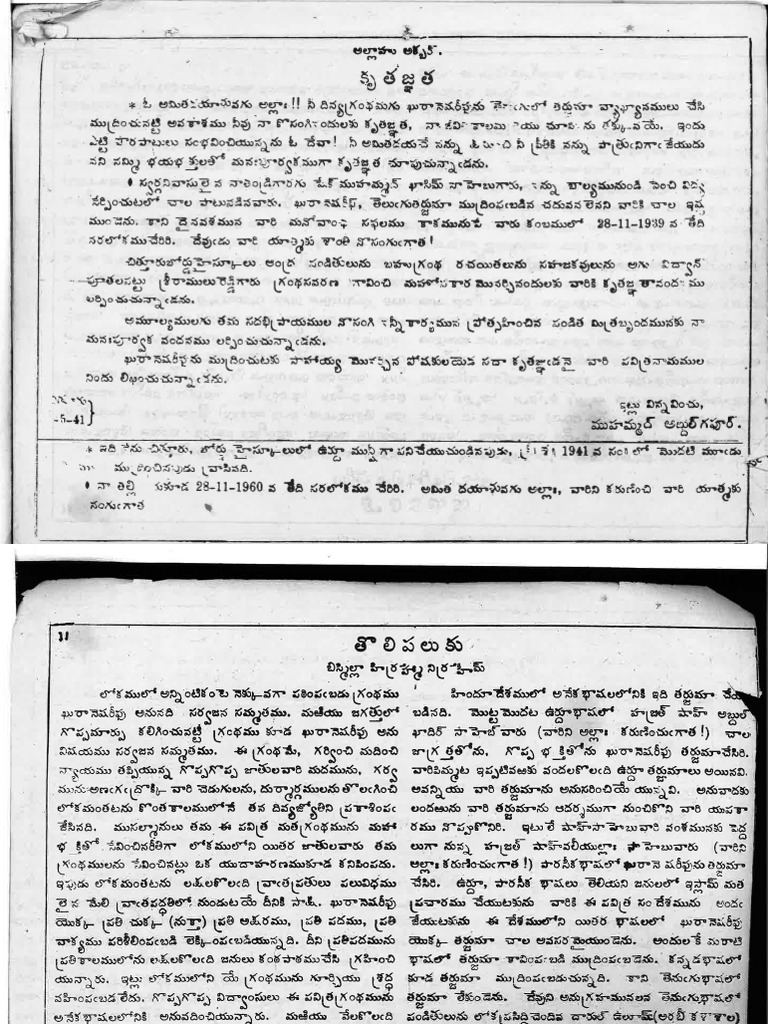 అల్లాహు అక్బర్.
కృతజ్ఞత
* ఓ అమితదయాళువగు అల్లాః!! నీ దివ్యగ్రంథమగు ఖురానెషరీఫ్ను తెర్జుమా వ్యాఖ్యానములు చేసి
ముద్రించునట్టి అవకాశము నీవు నా కొసంగినందులకు కృతజ్ఞత, నా జీవితకాలమ చూపిను తక్కువయే. ఇందు
ఎట్టి పొరపాటులు సంభవించియున్నను ఓ దేవా! నీ అమితదయచే నన్ను నీ ప్రీతికి నన్ను పాత్రునిగాఁ జేయుదు
వని నమ్మి భయభక్తులతో మనఃపూర్వకముగా కృతజ్ఞత చూపుచున్నాఁడను.
• స్వర్గనివాసులైన నాతండ్రిగారగు షేక్ ముహమ్మద్ ఖాసిమ్ సాహెబుగారు, నన్ను బాల్యమునుండి పెంచి విద్య
నేర్పించుటలో చాల పాటుపడినవారు. ఖురానెషరీఫ్, తెలుగుతెర్జుమా ముద్రింపబడిన చదువవలెనని వారికి చాల ఇష్ట
ముండెను. కాని దైవవశమున వారి మనోవాంఛ సఫలము కాకమునుపే వారు కంబములో 28-11-1939 వ తేది
పరలోకముచేరిరి. దేవుఁడు వారి యాత్మకు శాంతి నొసంగుఁగాత!
చిత్తూరుబోర్డుహైస్కూలు ఆంధ్ర పండితులును బహుగ్రంథ రచయితలును సహజకవులును అగు విద్వాన్
పూతలపట్టు శ్రీరాములురెడ్డిగారు గ్రంథసవరణ గావించి మహోపకార మొనర్చినందులకు వారికి కృతజ్ఞతావందనము
లర్పించుచున్నాఁడను.
అమూల్యములగు తమ సదభిప్రాయముల నొసంగి నన్నీకార్యమున ప్రోత్సహించిన పండిత మిత్రబృందమునకు నా
మనఃపూర్వక వందనము లర్పించుచున్నాఁడను.
ఖురానెషరీఫ్ను ముద్రించుటకు సాహాయ్య మొనర్చిన పోషకులయెడ సదా కృతజ్ఞుఁడనై వారి పవిత్రనామముల
నిందు లిఖించుచున్నాఁడను.
-5-41
ఇట్లు విన్నవించు,
ముహమ్మద్ అబ్దుల్ గపూర్.
* ఇది నేను చిత్తూరు, బోర్డు హైస్కూలులో ఉర్దూ మున్షీగా పనిచేయుచుండినపుడు, క్రీ శ 1941 వ సం లో మొదటి మూడు
ముద్రించినపుడు వ్రాసినది.
• నా తల్లి కూడ 28-11-1960 వ తేది పరలోకము చేరిరి. అమిత దయాళువగు అల్లాః, వారిని కరుణించి వారి యాత్మకు
సంగుఁగాత
11
తొలిపలుకు
బిస్మిల్లా హిర్రహ్మా నిర్రహీమ్
లోకములో అన్నింటికంటె నెక్కువగా పఠింపఁబడు గ్రంథము
ఖురానెషరీఫు అనునది సర్వజన సమ్మతము. మఱియు జగత్తులో
గొప్పమార్పు కలిగించునట్టి గ్రంథము కూడ ఖురానెషరీఫు అను
విషయము సర్వజన సమ్మతము. ఈ గ్రంథమే, గర్వించి మదించి
న్యాయము తప్పియున్న గొప్పగొప్ప జాతులవారి మదమును, గర్వ
మును అణఁగఁద్రొక్కి వారి చెడుగులను, దుర్మార్గములను తొలగించి
లోకమంతటను కొంతకాలములోనే తన దివ్యజ్యోతిని ప్రకాశింపఁ
జేసినది. ముసల్మానులు తమ ఈ పవిత్ర మతగ్రంథమును మహా
భక్తితో సేవించినరీతిగా లోకములోని యితర జాతులవారు తమ
గ్రంథములను సేవించినట్లు ఒక యుదాహరణముకూడ కనిపింపదు.
ఇపుడు లోకమంతటను లక్షలకొలఁది వ్రాఁతప్రతులు పలువిధము
లైన మేలి వ్రాఁతపద్ధతిలో నుండుటయే దీనికి సాక్షి. ఖురానెషరీఫు
యొక్క ప్రతి చుక్క (నుక్తా) ప్రతి అక్షరము, ప్రతి పదము, ప్రతి
వాక్యము పరిశీలింపబడి లెక్కింపఁబడియున్నది. దీని ప్రతిపదమును
ప్రతికాలములోను లక్షలకొలఁది జనులు కంఠపాఠముచేసి గ్రహించి
యున్నారు. ఇట్లు లోకములోని యే గ్రంథమును గూర్చియు శ్రద్ధ
వహింపఁబడలేదు. గొప్పగొప్ప విద్వాంసులు ఈ పవిత్రగ్రంథమును
అనేకభాషలలోనికి అనువదించియున్నారు. మఱియు వేలకొలఁది
హిందూదేశములో అనేకభాషలలోనికి ఇది తర్జుమా చేయ
బడినది. మొట్టమొదట ఉర్దూభాషలో హజ్రత్ షాహ్ అబ్దుల్
ఖాదిర్ సాహెబ్‌వారు (వారిని అల్లాః కరుణించుఁగాత!) చాల
జాగ్రత్తతోను, గొప్ప భక్తితోను ఖురానెషరీఫు తర్జుమాచేసిరి.
వారిపిమ్మట ఇప్పటివఱకు వందలకొలఁది ఉర్దూ తర్జుమాలు అయినవి.
అవన్నియు వారి తర్జుమాను అనుసరించియే యున్నవి. అనువాదకు
లందఱును వారి తర్జుమాను ఆదర్శముగా నుంచికొని వారి యుపకా
రము నొప్పుకొనిరి. ఇటులే షాహ్‌సాహెబువారి వంశమునకు పెద్ద
లుగా నున్న హజ్రత్ షాహ్‌వలీయుల్లాః సాహెబువారు (వారిని
అల్లాః కరుణించుఁగాత!) పారసీకభాషలో ఖురానెషరీఫును తర్జుమా
చేసిరి. ఉర్దూ, పారసీక భాషలు తెలియని జనులలో ఇస్లామ్ మత
ప్రచారము చేయుటకును వారికి ఈ పవిత్ర సందేశమును అందఁ
జేయుటకును ఈ దేశములోని యితర భాషలలో ఖురానెషరీఫు
యొక్క తర్జుమా చాల అవసరమైయుండెను. అందులకే మరాటి
భాషలో తర్జుమా కావింపఁబడి ముద్రింపఁబడెను. కన్నడభాషలో
కూడ తర్జుమా ముద్రింపఁబడుచున్నది. కాని తెనుగుభాషలో
తర్జుమా లేకుండెను. దేవుని అనుగ్రహమువలన తెనుగుభాషలో
పండితులును లోకప్రసిద్ధిచెందిన దారుల్ ఉలూమ్ (అరబీ కళాశాల)